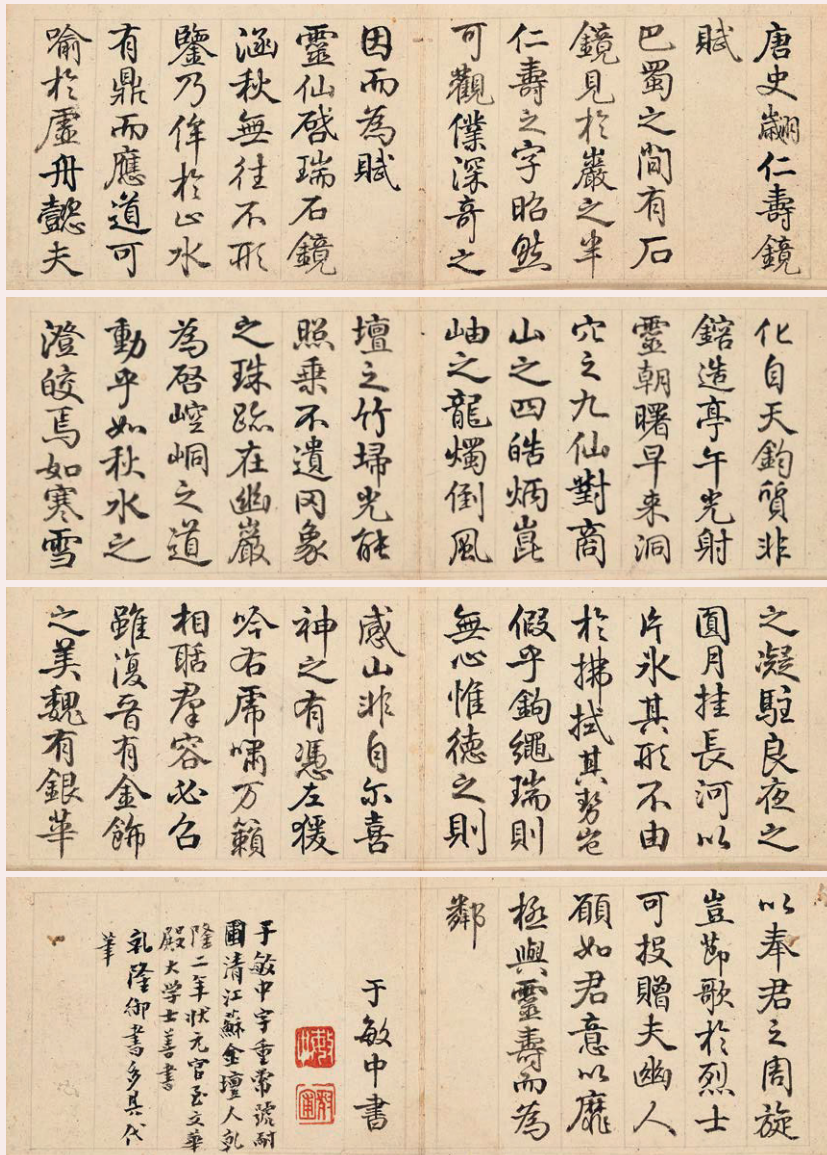 唐史翽仁壽鏡
賦
巴蜀之間有石
鏡見於巖之半
仁壽之字昭然
可觀僕深奇之
因而為賦
靈仙啓瑞石鏡
涵秋無往不形
鑒乃侔於止水
有鼎而應道可
喻於虛舟懿夫
化自天鈞質非
鎔造亭午光射
靈朝曙早來洞
穴之九仙對商
山之四皓炳崑
岫之龍燭倒風
壇之竹埽光能
照乗不遺罔象
之珠跡在幽巖
為启崆峒之道
動乎如秋水之
澄皎焉如寒雪
之凝駐良夜之
圓月挂長河以
片氷其形不由
於拂拭其勢豈
假乎鈎繩瑞則
無心惟德之則
感山非自尔喜
神之有憑左猨
吟右虎嘯万籟
相聒羣容必召
雖復晉有金飾
之美魏有銀華
以奉君之周旋
豈節歌於烈士
可投贈夫幽人
願如君意以靡
極與靈壽而為
鄰
于敏中書
于敏中字重棠號耐
圃清江蘇金壇人乾
隆二年狀元官至文華
殿大学士善書
乾隆御書多其代
筆